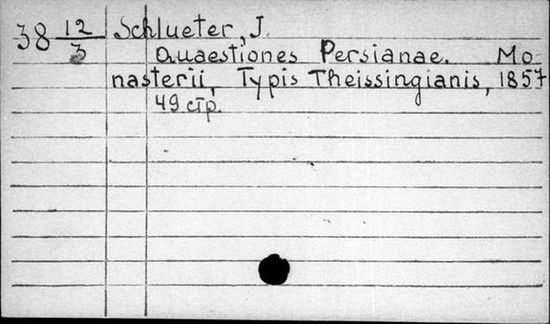 38 12/3 Schlueter, J.
Quaestiones Persianae. Mo-
nasterii, Typis Theissingianis, 1857
49 стр.